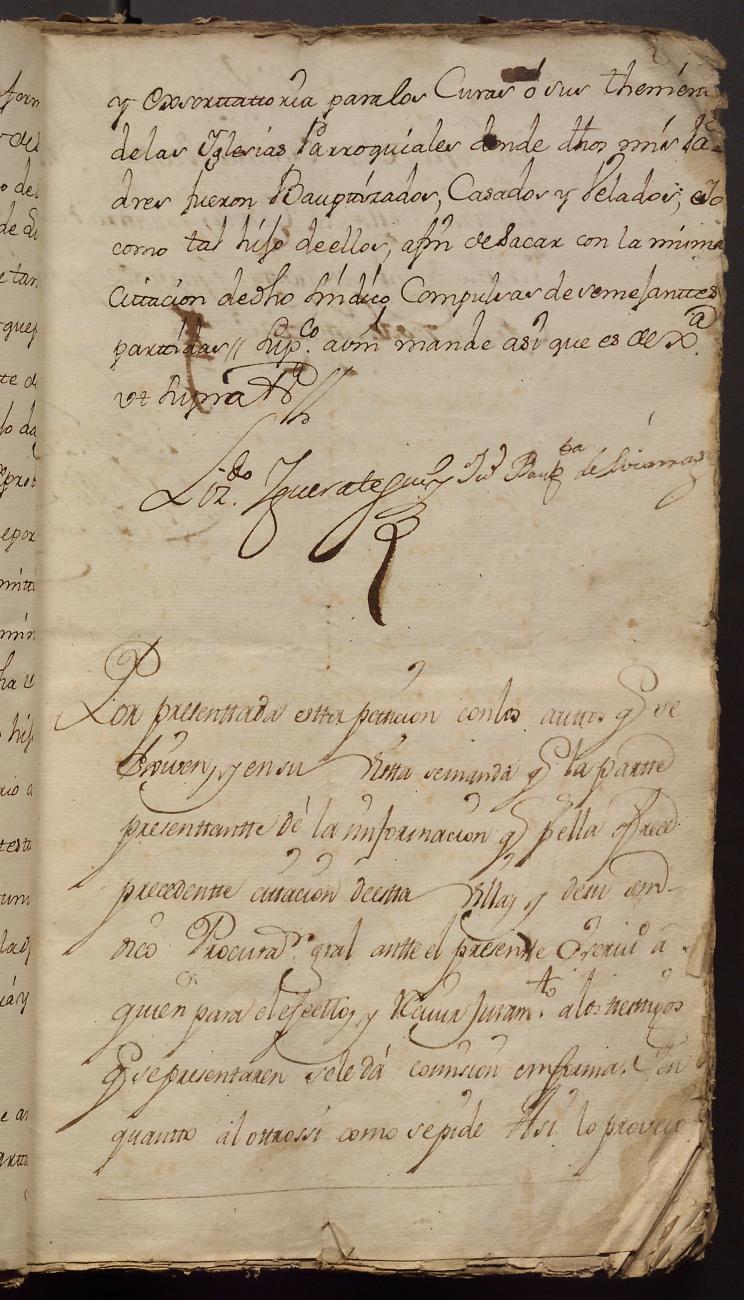 y Exsortatoria para los Curas ó sus thenien
de las Yglesias Parroquiales donde dhos mis Pa
dres fueron Bauptizados, Casados y Velados, é Io
como tal hijo de ellos, afin de sacar con la misma
Cittacion de dho Síndico, Compulsas de semejanttes
parttidas // Sup.co aVm mande asi que es de Xa.
vt supra
Lizdo. Juan Baupta de
Por presenttada estta petticion con los auttos q se
y en su Vistta semanda q la partte
presenttantte dé la Informacion q p ella ofrece
precedentte cittacion de estta Villa, y de su Sind
dico Procurar. gral antte el presentte Escriuo á
quien para el efectto, y Recivir Juramto. a los testtigos
q se presentaren se le dá comision en forma. Y en
quantto al ottrossi como se pide Assi lo proveio